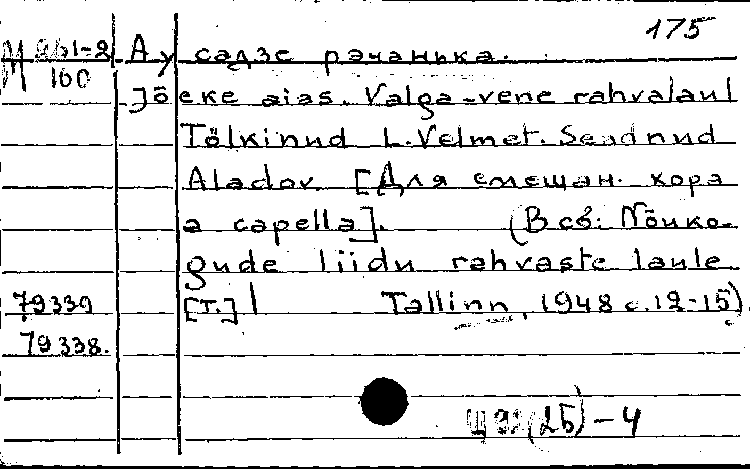 175
М 261-2 Ау садзе рэчанька.
160
Jõeke aias. Valga-vene rahvalaul
Tõlkinud L. Velmet. Seadnud
Aladov. [Для смешан. хора
a capella]. (В сб: Nõuko-
gude liidu rahvaste laule
79339 [т.] 1 Tallinn, 1948 с. 12-15).
79338.
(2Б)-4